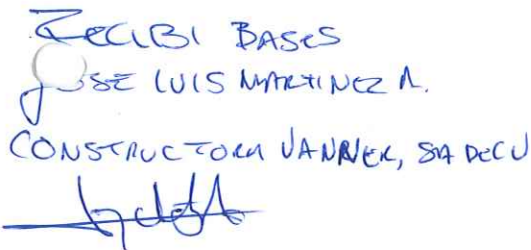 RECIBI BASES
JOSE LUIS MARTINEZ A.
CONSTRUCTORA VANNER, SA DE CV